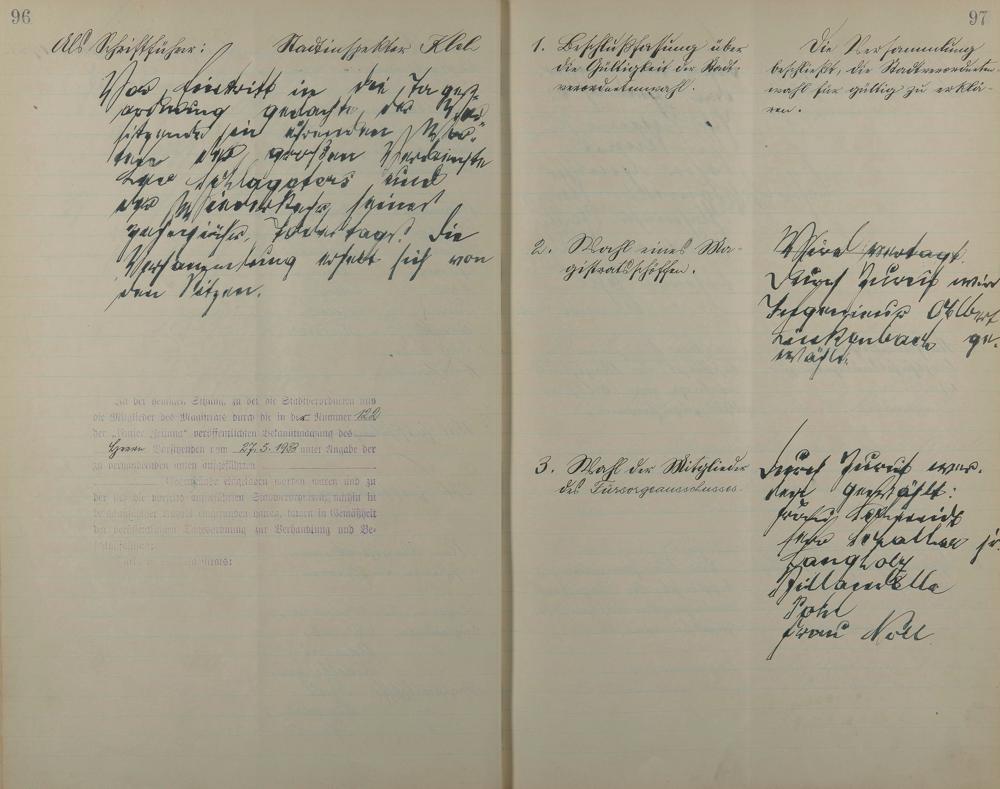 96
Als Schriftführer: Stadtinspektor Klel
Vor Eintritt in die Tages-
ordnung gedachte der Vor-
sitzende in ehrenden Wor-
ten der großen Verdienste
Leo Schlageters und
der Wiederkehr seines
Todestags. Die
Versammlung erhebt sich von
den Sitzen.
In der heutigen Sitzung, zu der die Stadtverordneten und
die Mitglieder des Magistrats durch die in der Nummer 122
der veröffentlichten Bekanntmachung des
Herrn Vorstehenden vom 27.5.1933 unter Angabe der
zu verhandelnden unten aufgeführten
Gegenstände eingeladen worden waren und zu
der die vorseits aufgeführten Stadtverordneten
erschienen waren, in Gemäßheit
der veröffentlichten Tagesordnung zur Verhandlung und Be-
97
1. Beschlußfassung über
die Gültigkeit der Stadt-
verordnetenwahl.
Die Versammlung
beschließt, die Stadtverordneten-
wahl für gültig zu erklä-
ren.
2. Wahl eines Ma-
gistratsschöffen.
Wird vertagt.
Durch Zuruf wird
Ingenieur Albert
Linkenbach ge-
wählt.
3. Wahl der Mitglieder
des Fürsorgeausschusses.
Durch Zuruf wer-
den gewählt:
Langholz
Villardelle
Pohl
Frau Noll